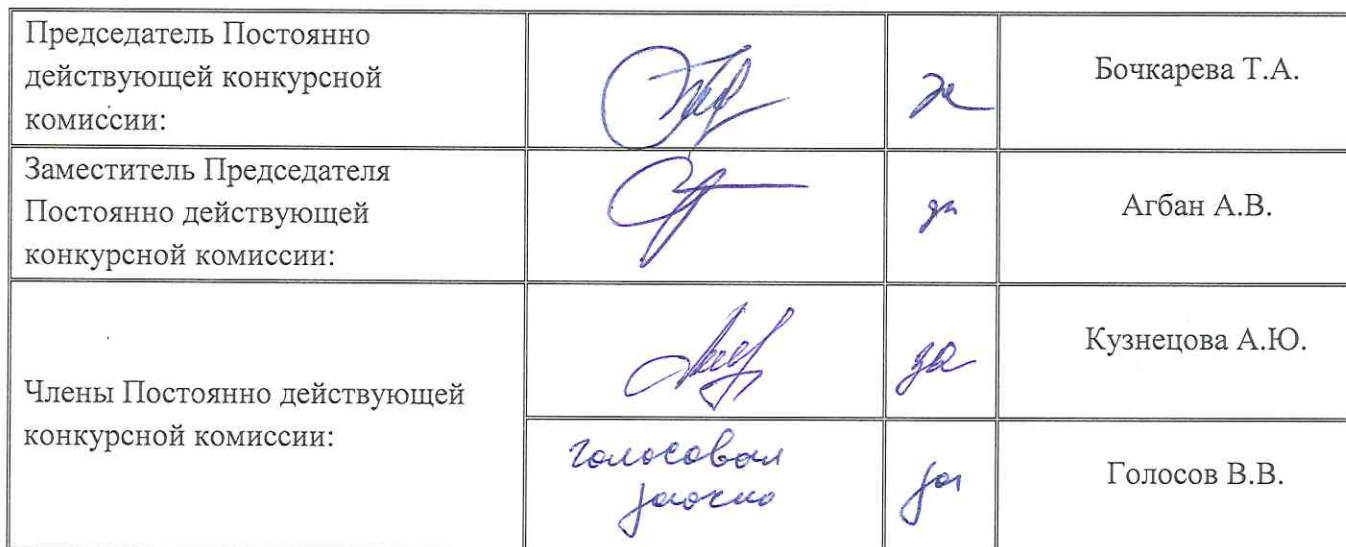 Председатель Постоянно
действующей конкурсной
комиссии:
за
Бочкарева Т.А.
Заместитель Председателя
Постоянно действующей
конкурсной комиссии:
за
Агбан А.В.
Члены Постоянно действующей
конкурсной комиссии:
за
Кузнецова А.Ю.
голосовал
заочно
за
Голосов В.В.